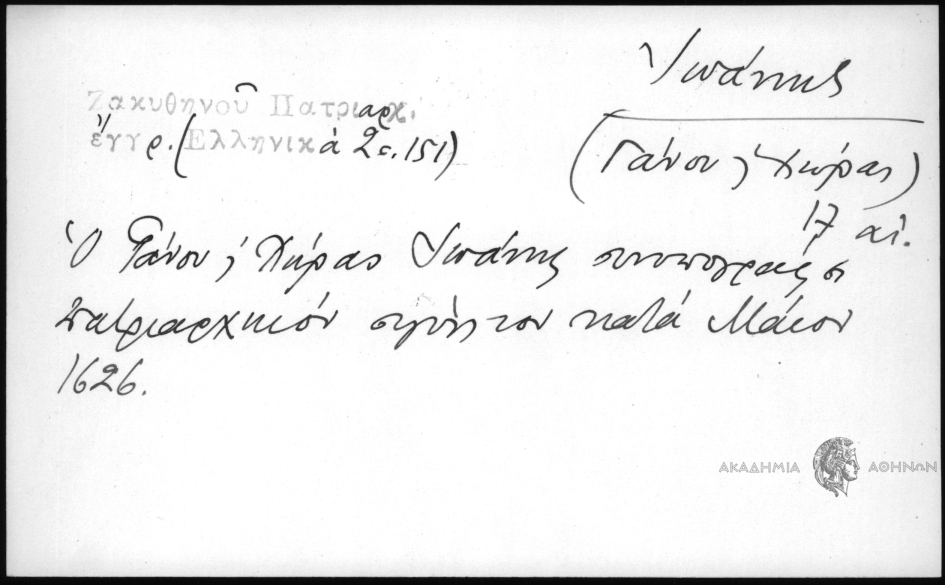 Ζακυθηνοῦ Πατριαρχ.
ἔγγρ. (Ἑλληνικά 2 σ. 151)
Ἰωάννης
(Γάνου ϗ Χώρας)
17 αἰ.
Ὁ Γάνου ϗ Χώρας Ἰωάννης συνυπογράφει
πατριαρχικόν σιγίλλιον κατά Μάιον
1626.
ΑΚΑΔΗΜΙΑ ΑΘΗΝΩΝ